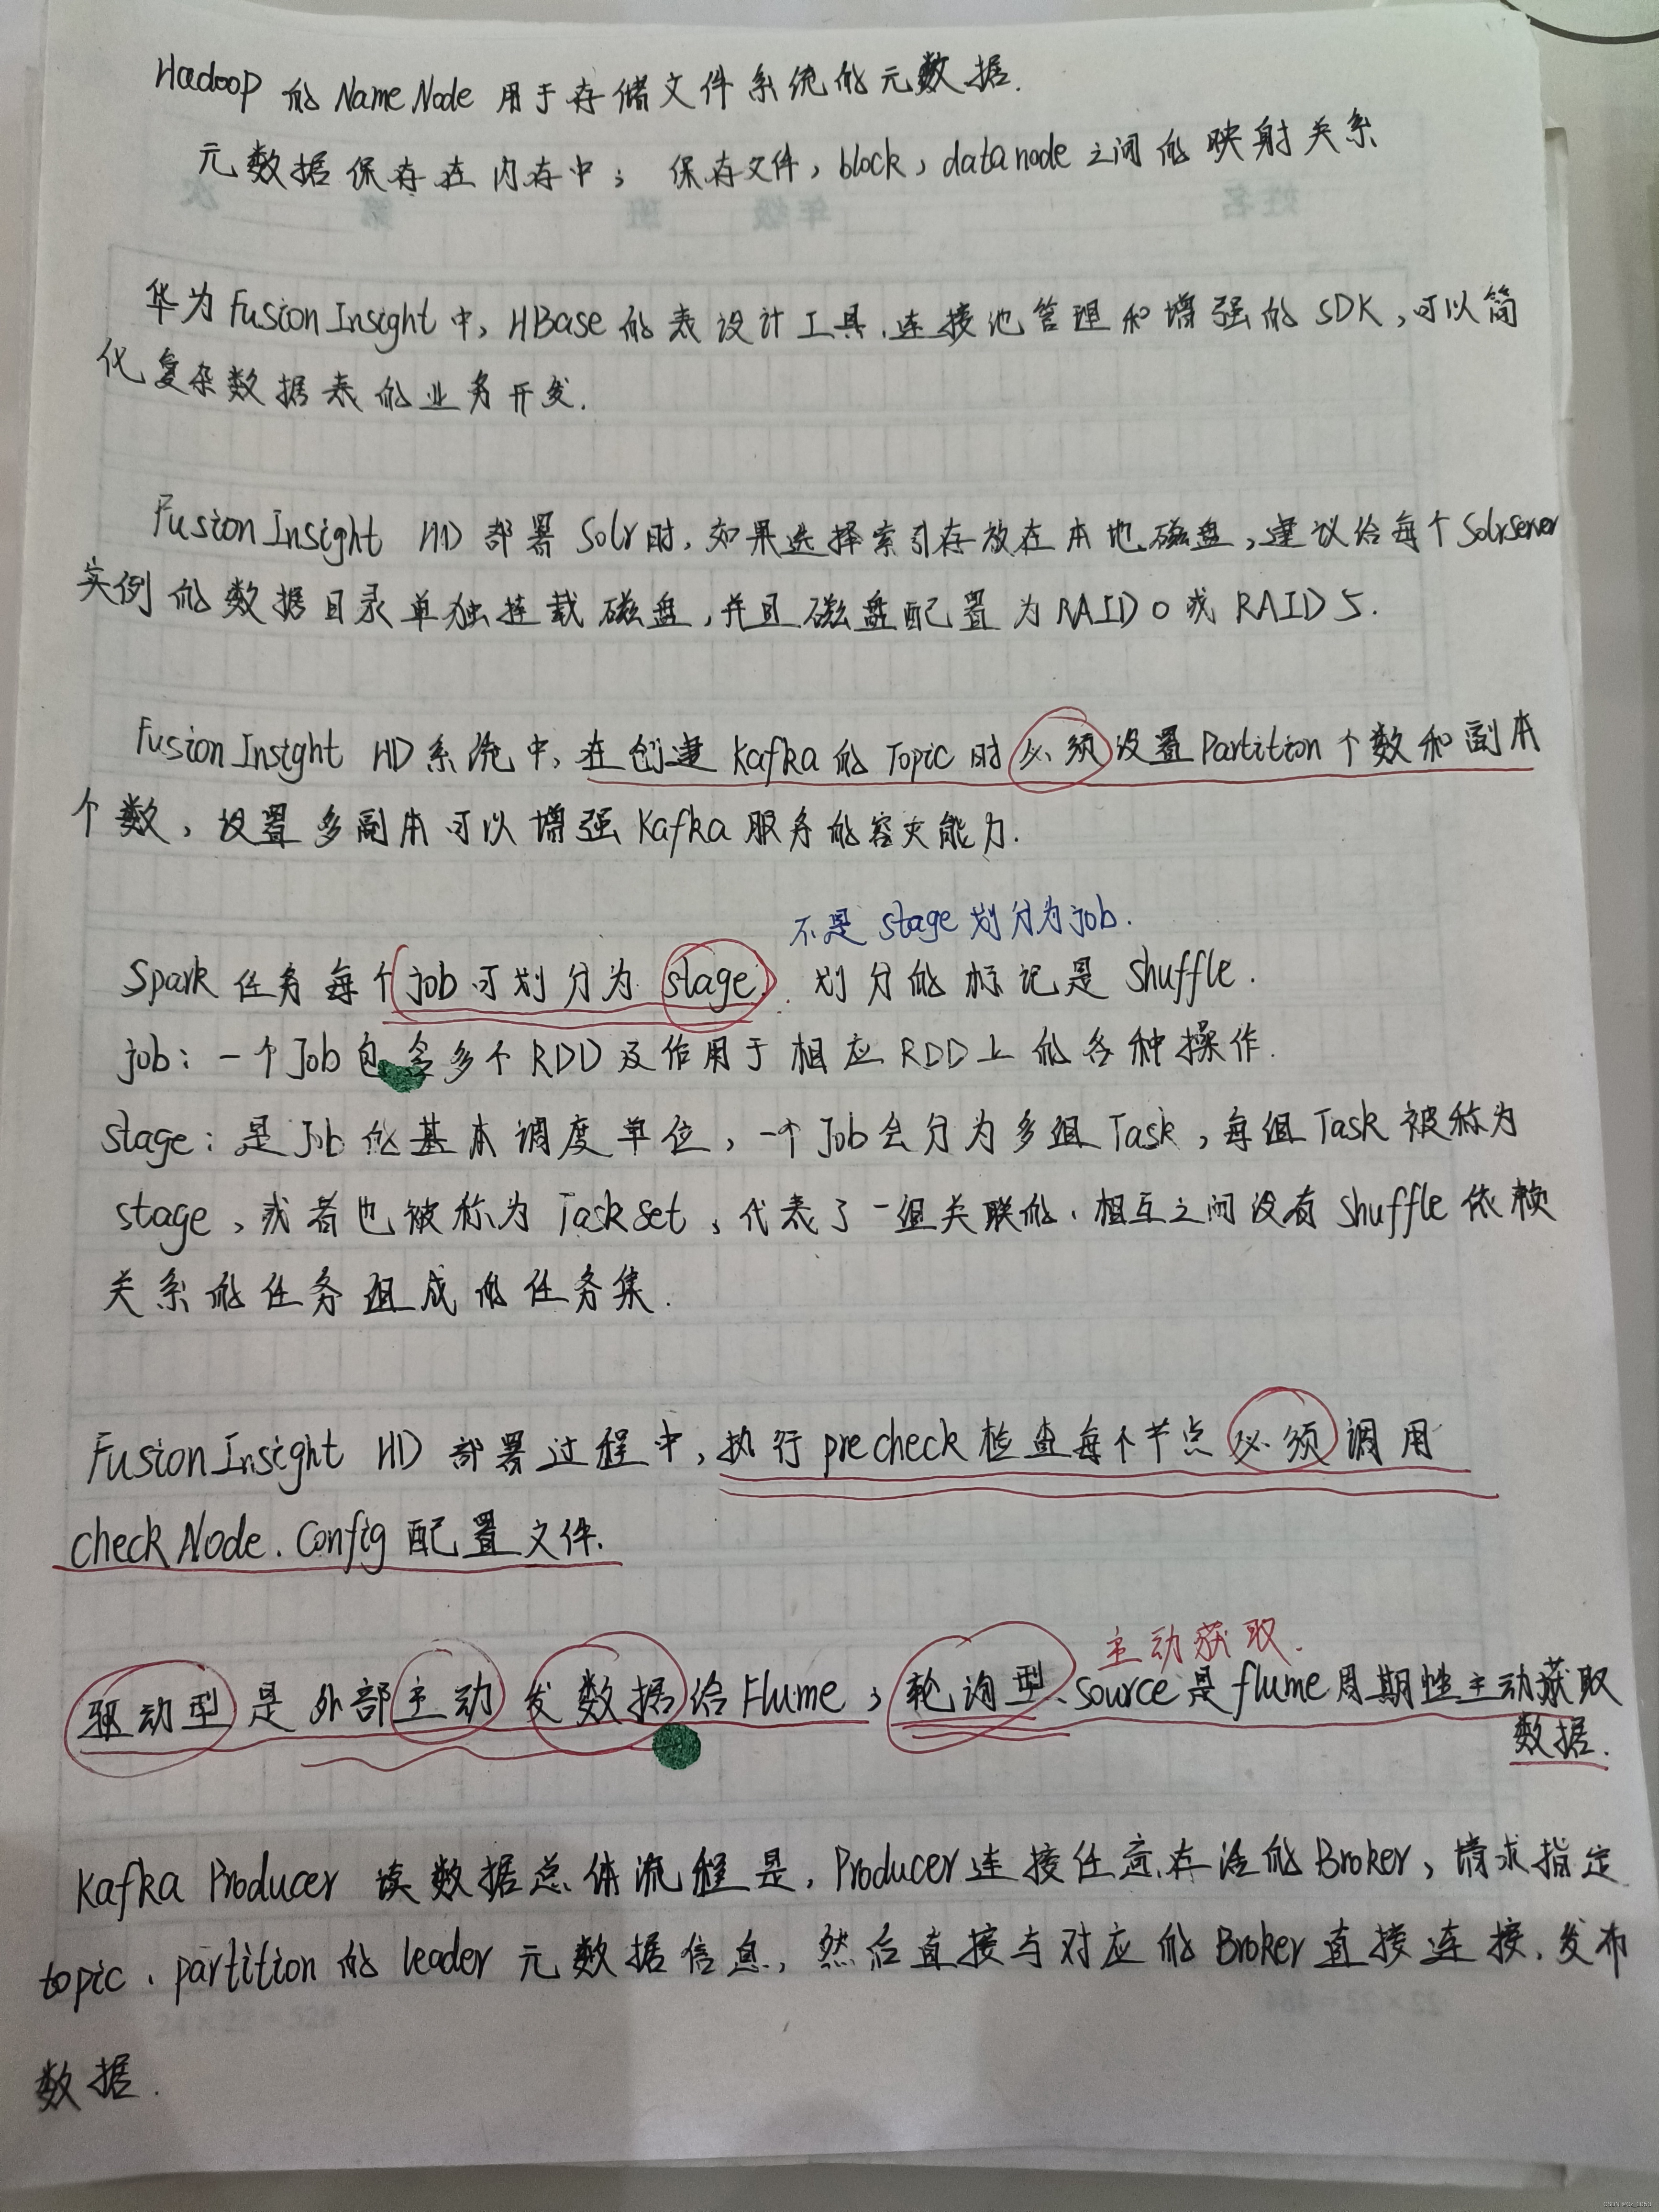 Hadoop 的 NameNode 用于存储文件系统的元数据.
元数据保存在内存中; 保存文件, block, datanode 之间的映射关系
华为 FusionInsight 中, HBase 的表设计工具、连接池管理和增强的 SDK, 可以简
化复杂数据表的业务开发.
FusionInsight HD 部署 Solr 时, 如果选择索引存放在本地磁盘, 建议给每个 Solrserver
实例的数据目录单独挂载磁盘, 并且磁盘配置为 RAID 0 或 RAID 5.
FusionInsight HD 系统中, 在创建 Kafka 的 Topic 时必须设置 Partition 个数和副本
个数, 设置多副本可以增强 Kafka 服务的容灾能力.
不是 stage 划分为 job.
Spark 任务每个 job 可划分为 stage. 划分的标记是 shuffle.
job: 一个 Job 包含多个 RDD 及作用于相应 RDD 上的各种操作.
stage: 是 Job 的基本调度单位, 一个 Job 会分为多组 Task, 每组 Task 被称为
stage, 或者也被称为 TaskSet, 代表了一组关联的、相互之间没有 shuffle 依赖
关系的任务组成的任务集.
FusionInsight HD 部署过程中, 执行 precheck 检查每个节点必须调用
checkNode.Config 配置文件.
主动获取.
驱动型是外部主动发数据给 Flume; 轮询型、source 是 flume 周期性主动获取
数据.
Kafka Producer 读数据总体流程是, Producer 连接任意存活的 Broker, 请求指定
topic、partition 的 leader 元数据信息, 然后直接与对应的 Broker 直接连接, 发布
数据.